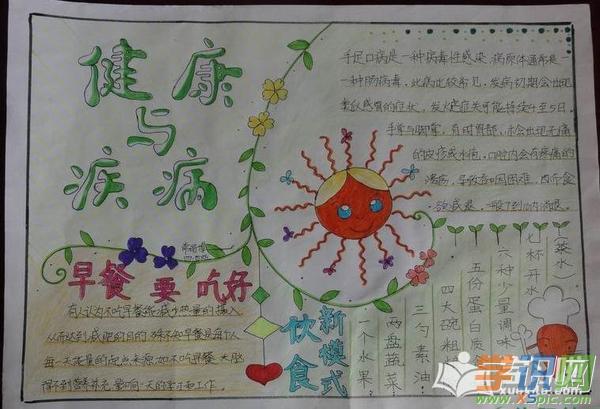 健康
与
疾病
手足口病是一种病毒性感染,病原体通常是
一种肠病毒,此病比较常见,发病初期会出现
类似感冒的症状,发火症关可能持续4至5日,
手掌与脚掌,有时臀部,亦会出现无痛
的皮疹或水疱,口腔内会有疼痛的
溃疡,导致吞咽困难,
早餐要吃好
有人认为不吃早餐能减少热量的摄入
从而达到减肥的目的,殊不知早餐是每个人
每一天能量的起点来源,如不吃早餐,大脑
得不到营养补充,影响一天的学习和工作。
新模式
饮食
七杯开水(茶水)
六种少量调味
五份蛋白质
四大碗粗
三勺素油
两盘蔬菜
一个水果
学识网
www.xspic.com